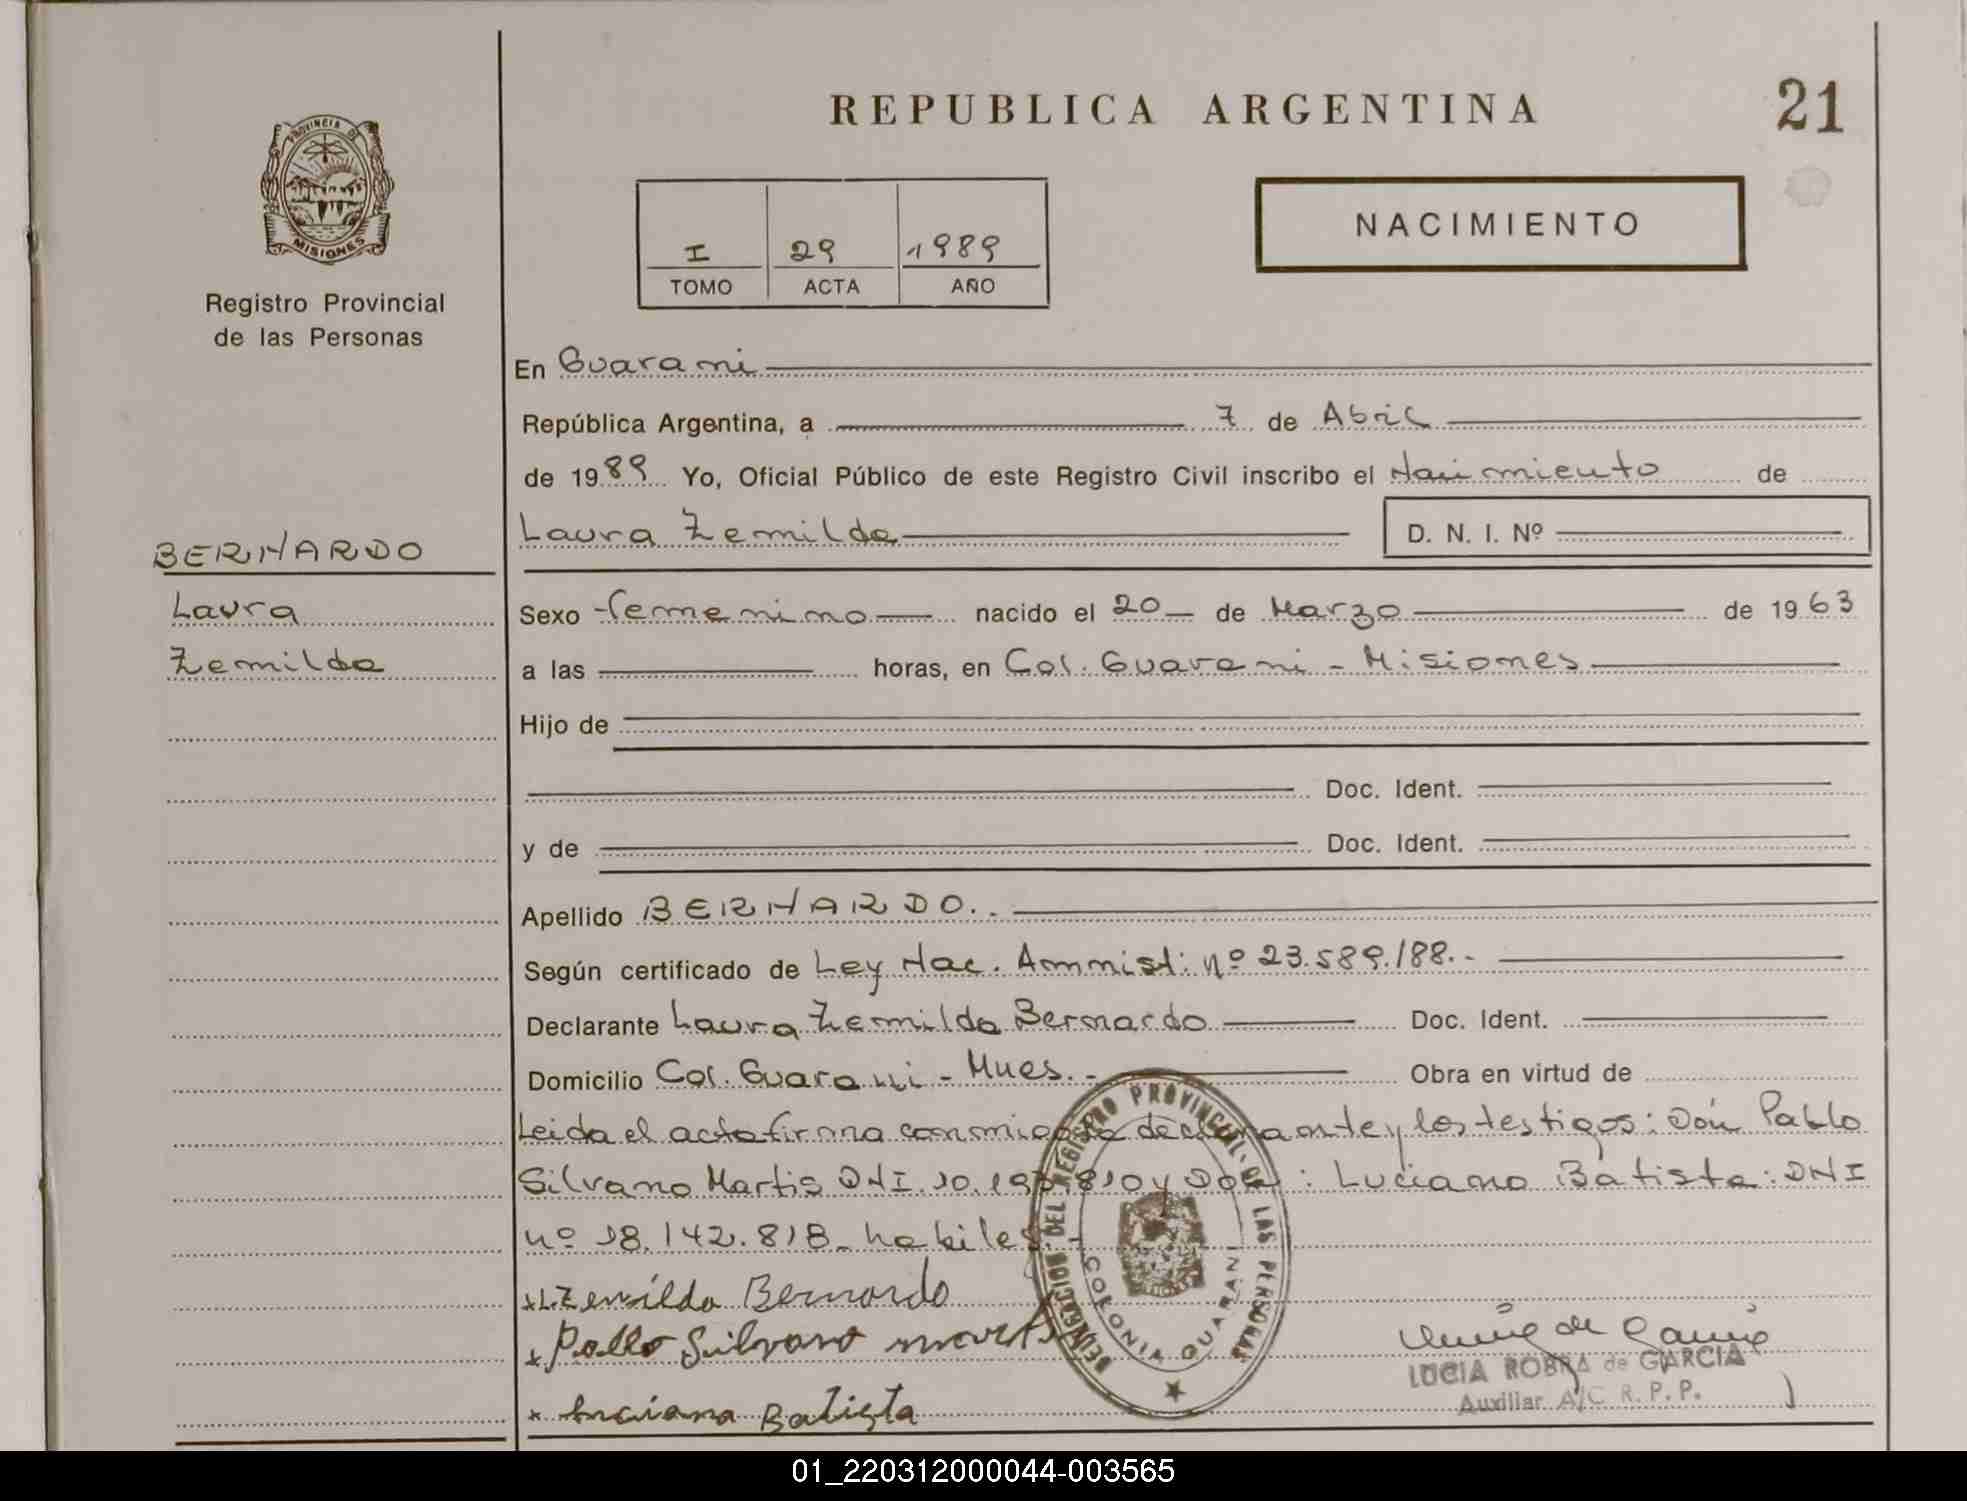 REPUBLICA ARGENTINA
21
PROVINCIA DE
MISIONES
Registro Provincial
de las Personas
I 29 1989
TOMO ACTA AÑO
NACIMIENTO
En Guarani
República Argentina, a 7 de Abril
de 1989 Yo, Oficial Público de este Registro Civil inscribo el Nacimiento de
Laura Zemilda D. N. I. Nº
BERNARDO
Laura
Zemilda
Sexo femenino nacido el 20 de Marzo de 1963
a las horas, en Col. Guarani - Misiones
Hijo de
Doc. Ident.
y de Doc. Ident.
Apellido BERNARDO..
Según certificado de Ley Nac. Amnist: nº 23.589/88.-
Declarante Laura Zemilda Bernardo Doc. Ident.
Domicilio Col. Guarani - Mnes.- Obra en virtud de
Leida el acta firma conmigo la declarante y los testigos: Don Pablo
Silvano Martis DNI. 10. 810 y : Luciano Batista: DNI
nº 18.142.818- habiles.-
x L.Zemilda Bernardo
x Pablo Silvano
x Luciana Batista
DELEGACION DEL REGISTRO PROVINCIAL DE LAS PERSONAS
COLONIA GUARANI
LUCIA ROBRA de GARCIA
Auxiliar A/C R. P. P.
01_220312000044-003565